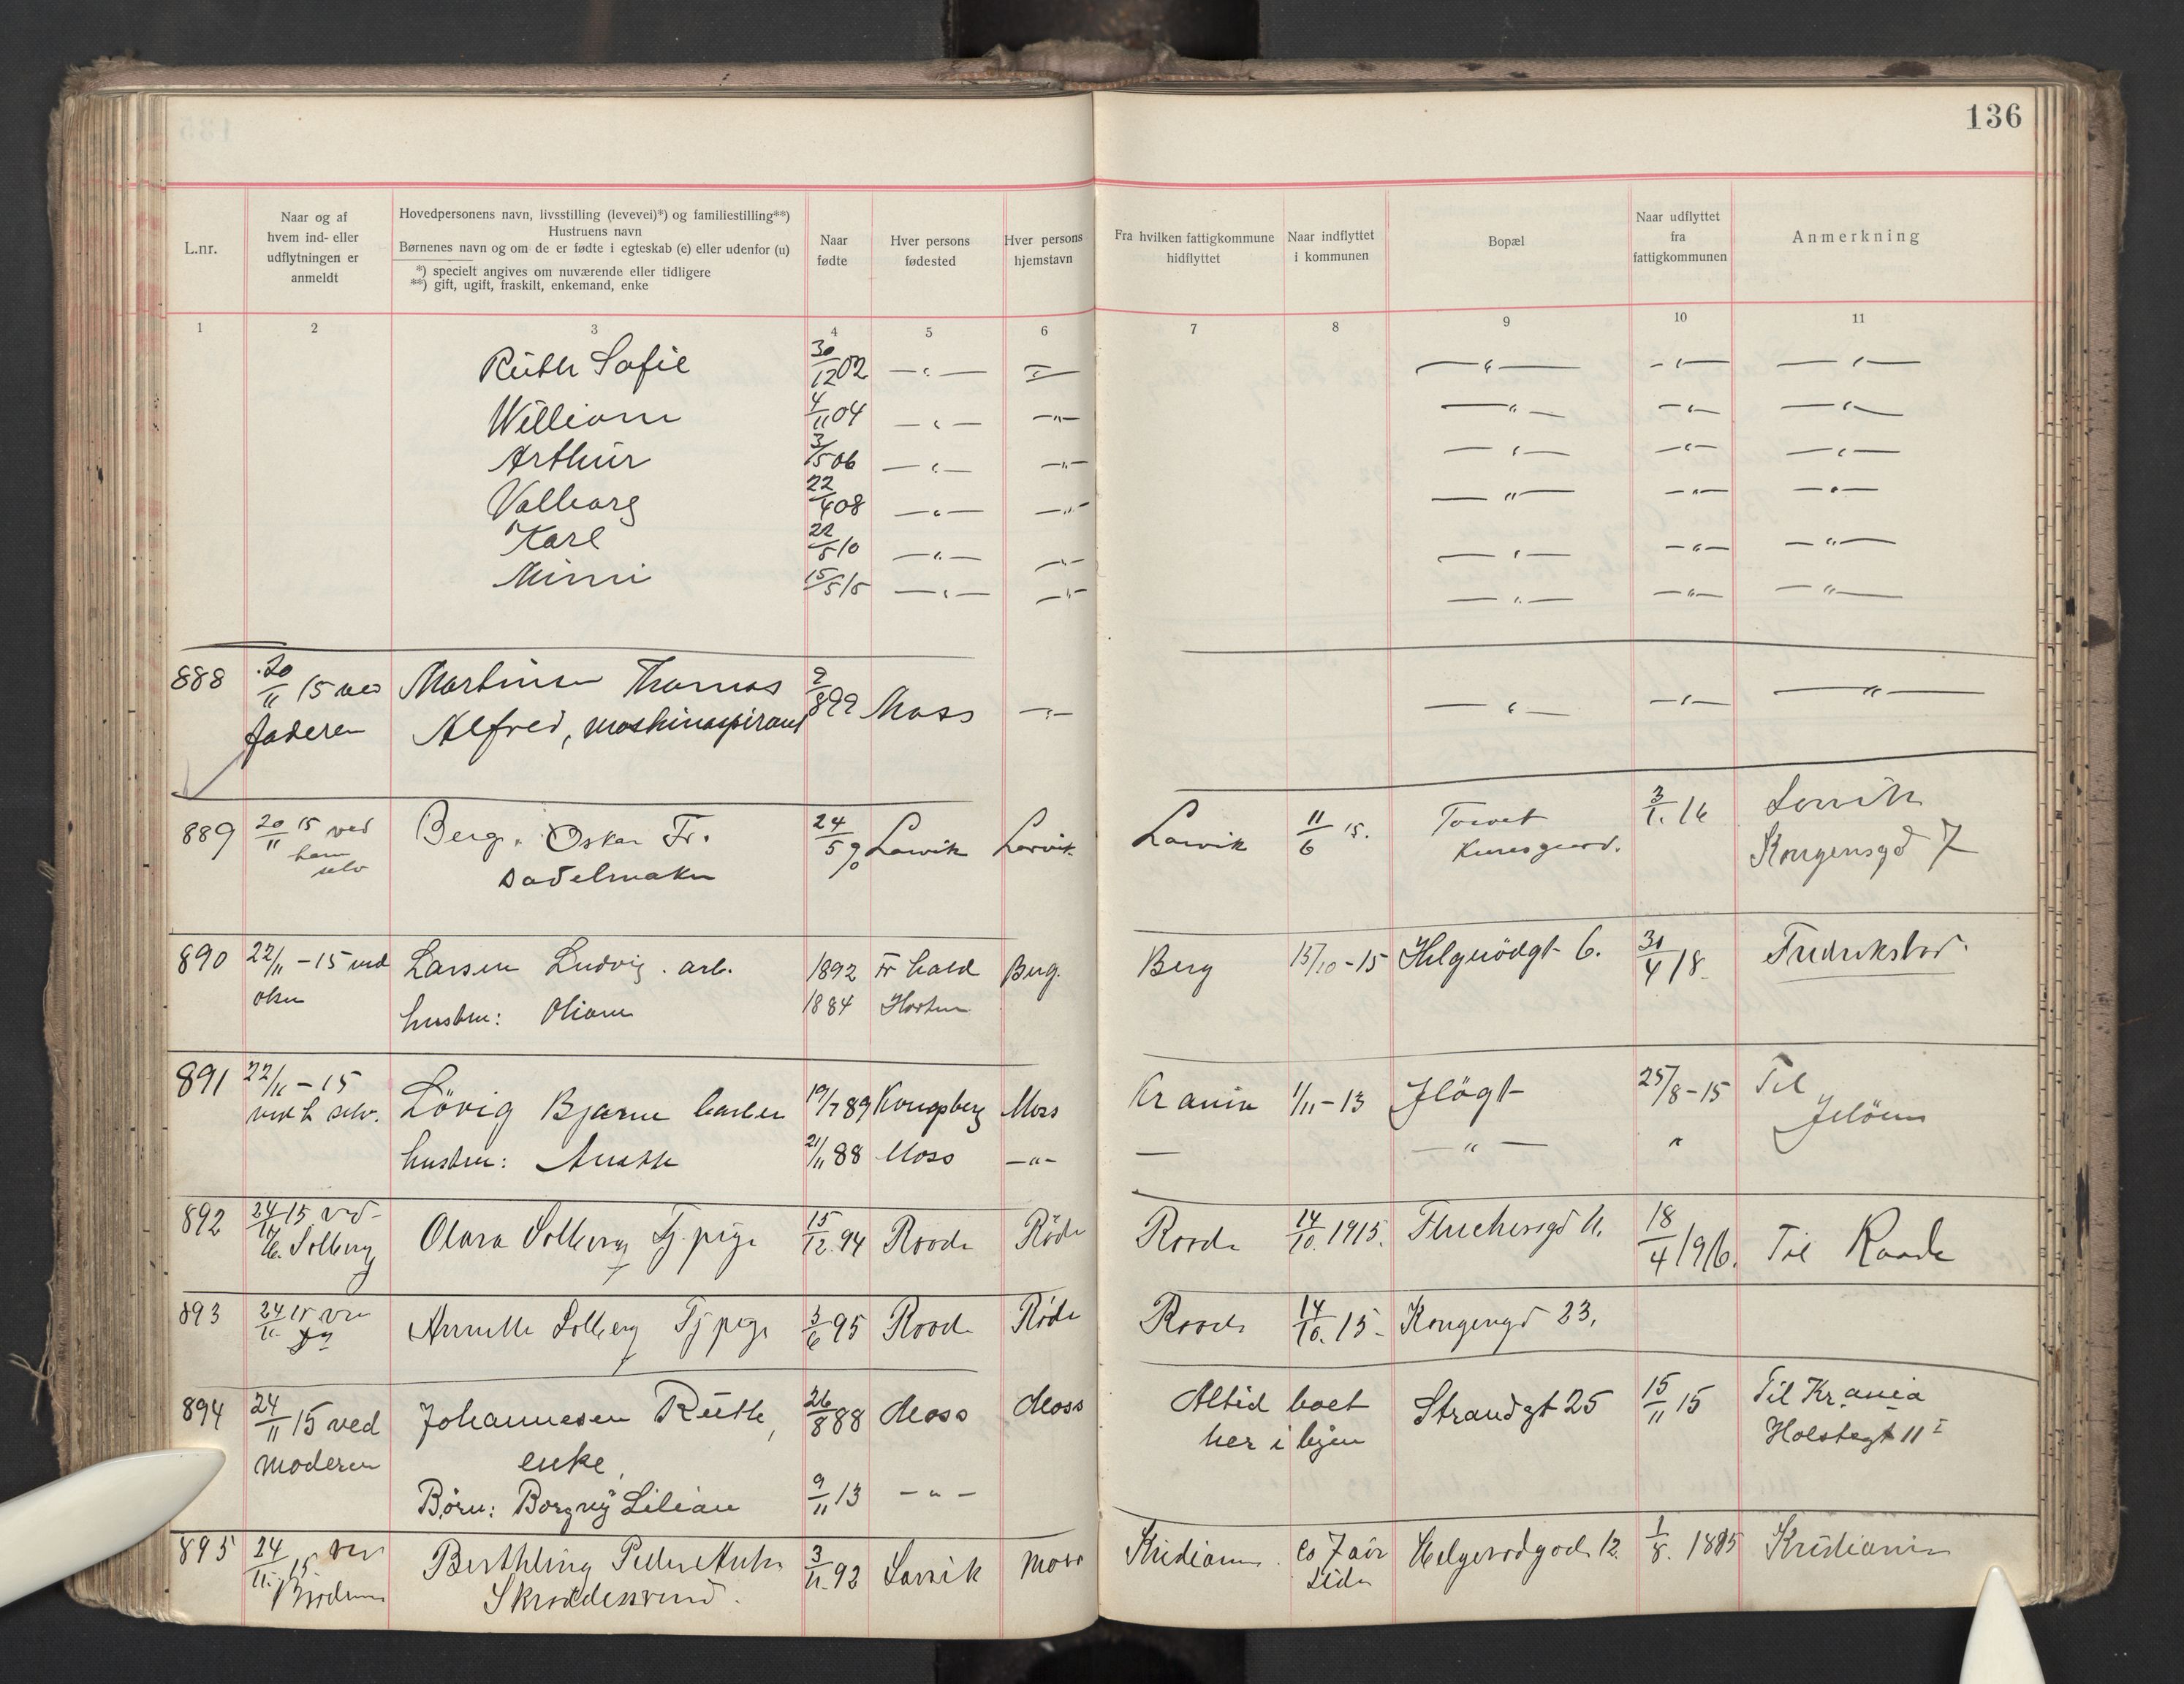 136
L.nr.
Naar og af
hvem ind- eller
udflytningen er
anmeldt
Hovedpersonens navn, livsstilling (levevei)*) og familiestilling**)
Hustruens navn
Børnenes navn og om de er fødte i egteskab (e) eller udenfor (u)
*) specielt angives om nuværende eller tidligere
**) gift, ugift, fraskilt, enkemand, enke
Naar
fødte
Hver persons
fødested
Hver persons
hjemstavn
Fra hvilken fattigkommune
hidflyttet
Naar indflyttet
i kommunen
Bopæl
Naar udflyttet
fra
fattigkommunen
Anmerkning
1 2 3 4 5 6 7 8 9 10 11
Ruth Sofie 30/12 02 —"— —"— —"— —"— —"—
William 4/11 04 —"— —"— —"— —"— —"—
Arthur 3/5 06 —"— —"— —"— —"— —"—
Valborg 22/4 08 —"— —"— —"— —"— —"—
Karl 22/5 10 —"— —"— —"— —"— —"—
Mimi 15/5 15 —"— —"— —"— —"— —"—
888 20/11 15 ved Martinsen Thomas 2/8 99 Moss —"— —"— —"— —"—
faderen Alfred, maskinaspirant
889 20/11 15 ved Berg. Oskar Fr. 24/5 90 Larvik Larvik Larvik 11/6 15. Torvet 3/1. 16 Larvik
ham
selv
Sadelmaker Kongensgd 7
890 22/11 - 15 ved Larsen Ludvig. arb. 1892 Fr hald Berg. Berg 15/10 - 15 Helgerödgt 6. 30/4 18 Fredrikstad.
hustru: 1884 Horten
891 22/11 - 15 Lövig Bjarne barber 19/7 89 Kongsberg Moss Krania 1/11 - 13 25/8 - 15 Til
ved h selv. Jelöen
hustru: 21/11 88 Moss —"— — —"— "
892 24/11 15 ved Solberg Tj. pige 15/12. 94 Raade Råde Raade 14/10. 1915. 11. 18/4 1916. Til Raade
Solberg
893 24/11 15 ved Annette Solberg Tj pige 3/6 95 Raade Råde Raade 14/10. 15 - Kongensgd 23.
894 24/11 15 ved Johannesen Ruth, 26/8 88 Moss Moss Altid boet Strandgt 25 15/11 15 Til Krania
moderen enke, her i byen Holstegt 11 I
Børn: Borgny Lilian 9/11 13 —"—
895 24/11. 15 ved Berthling 3/11. 92 Larvik Moss ca 7 aar 12. 1/8. Kristiania
siden